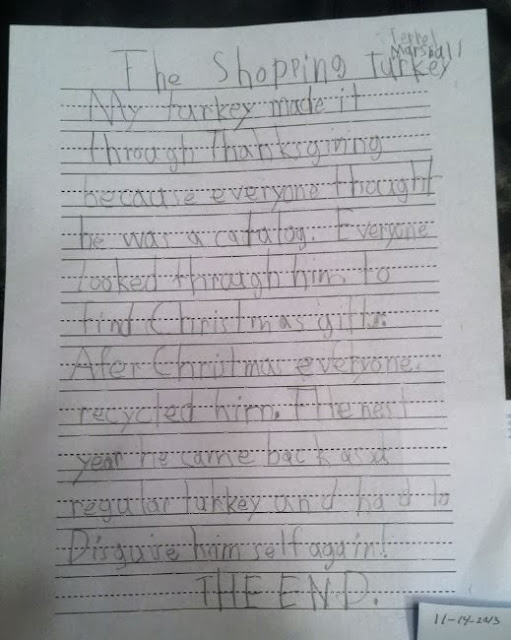 Terrel
Marshall
The Shopping Turkey
My turkey made it
through Thanksgining
because everyone thought
he was a catalog. Everyone
looked through him to
find Christmas gifts.
Afer Christmas everyone.
recycled him. The nest
year he came back as a
regular turkey and had to
Disguise him self again!
THE END.
11-14-2013